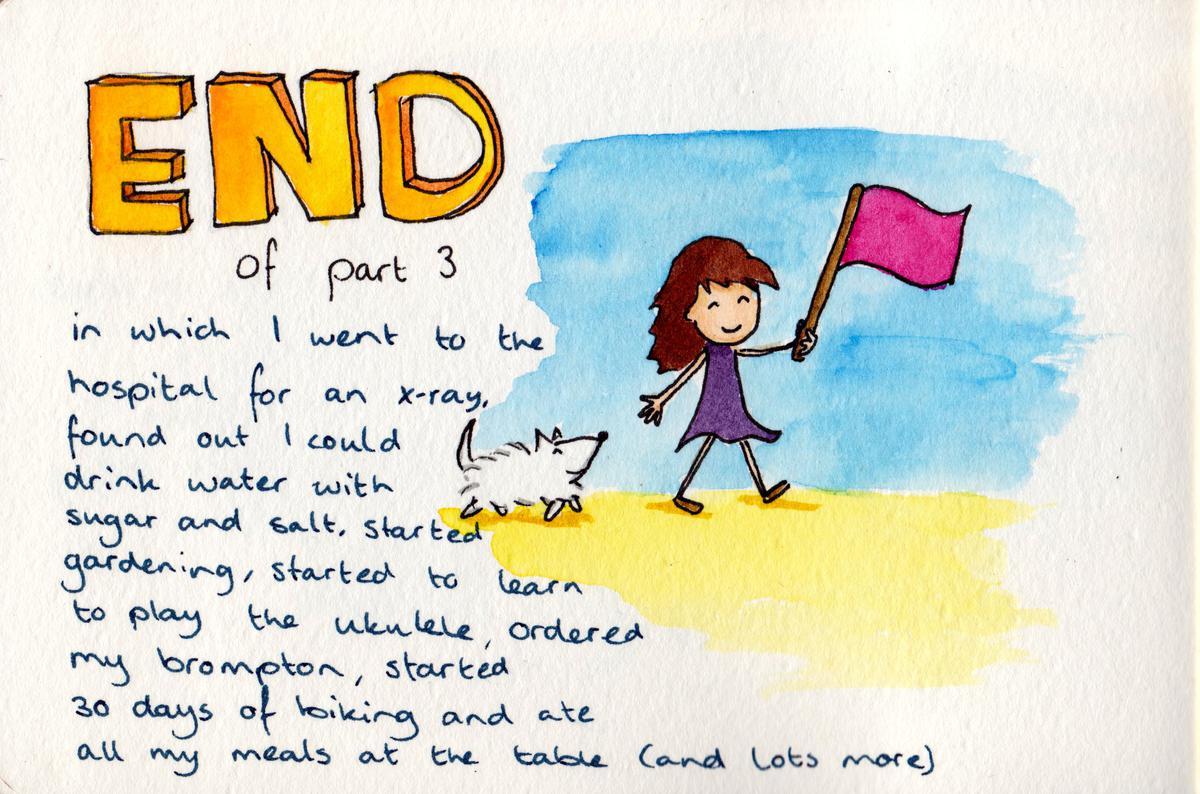 END
of part 3
in which I went to the
hospital for an x-ray,
found out I could
drink water with
sugar and salt, started
gardening, started to learn
to play the ukulele, ordered
my brompton, started
30 days of biking and ate
all my meals at the table (and lots more)